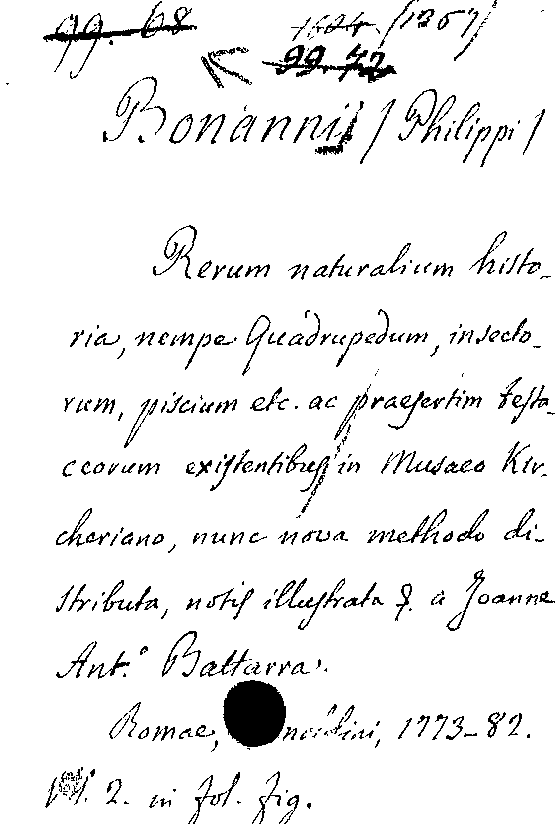 99. 68 1684 (1357)
99. 72
Bonannij (Philippi)
Rerum naturalium histo-
ria, nempe Quadrupedum, insecto-
rum, piscium etc. ac praesertim testa-
ceorum existentibus in Musaeo Kir-
cheriano, nunc nova methodo di-
stributa, notis illustrata &. a Joanne
Ant.° Battarra.
Romae, 1773-82.
2. in fol. fig.